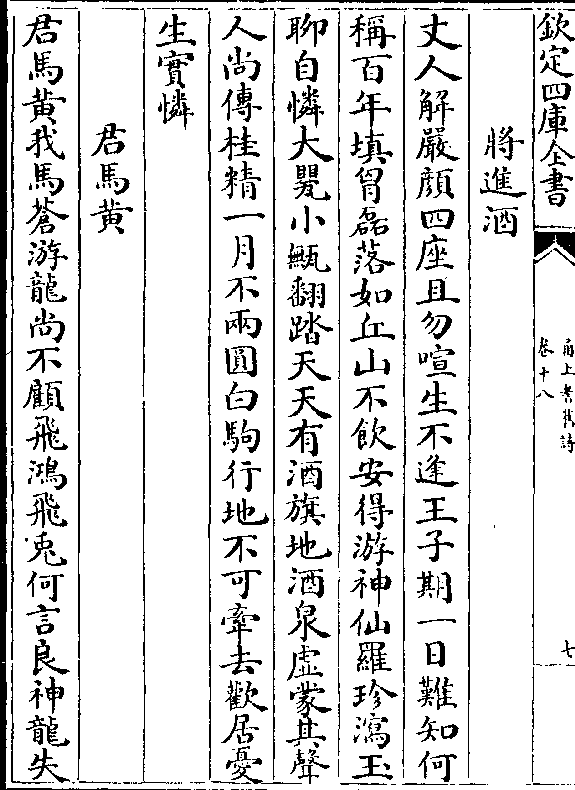 欽定四庫全書
甬上耆舊詩
卷十八
七
將進酒
丈人解嚴顔四座且勿喧生不逢王子期一日難知何
稱百年填胷磊落如丘山不飲安得游神仙羅珍瀉玉
聊自憐大斝小甌翻踏天天有酒旗地酒泉虛蒙其聲
人尚傳桂精一月不兩圓白駒行地不可牽去歡居憂
生實憐
君馬黄
君馬黄我馬蒼游龍尚不顧飛鴻飛兎何言良神龍失